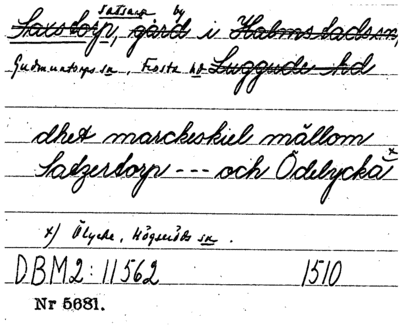 Satsarp by
Saxstorp, gård i Halmstads sn,
Gudmuntorps sn, Frosta hd Luggude hd
dhet marckeskiel mällom
Satzerdorp --- och Ödelycká x
x) Ölycke, Högseröds sn.
DBM2:11562 1510
Nr 5681.